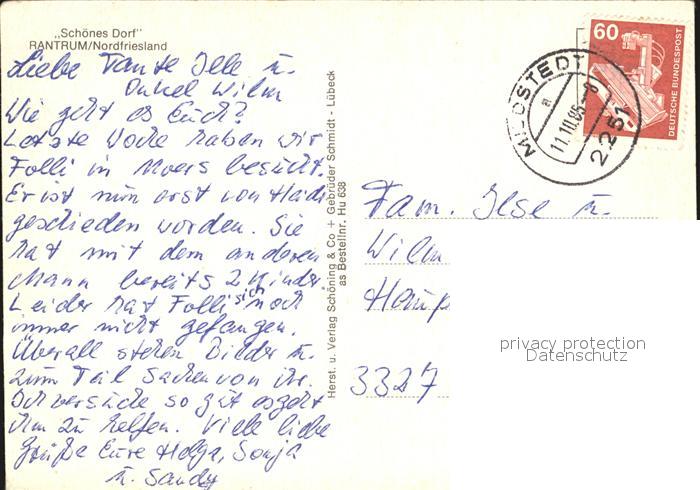 „Schönes Dorf"
RANTRUM/Nordfriesland
Liebe Tante Ilse u.
Onkel Wilm
Wie geht es Euch?
Letzte Woche haben wir
Folli in Moers besucht.
Er ist nun erst von Heidi
geschieden worden. Sie
hat mit dem anderen
Mann bereits 2 Kinder.
Leider hat Folli sich noch
immer nicht gefangen.
Überall stehen Bilder u.
zum Teil Sachen von ihr.
Ich versuche so gut es geht
ihm zu helfen. Viele liebe
Grüße Eure Helga, Sonja
u. Sandy
Herst. u. Verlag Schöning & Co + Gebrüder Schmidt - Lübeck
as Bestellnr. Hu 638
60
DEUTSCHE BUNDESPOST
MILDSTEDT
a
11.10.85-8
2251
Fam. Ilse u.
Wilm
3327
privacy protection
Datenschutz